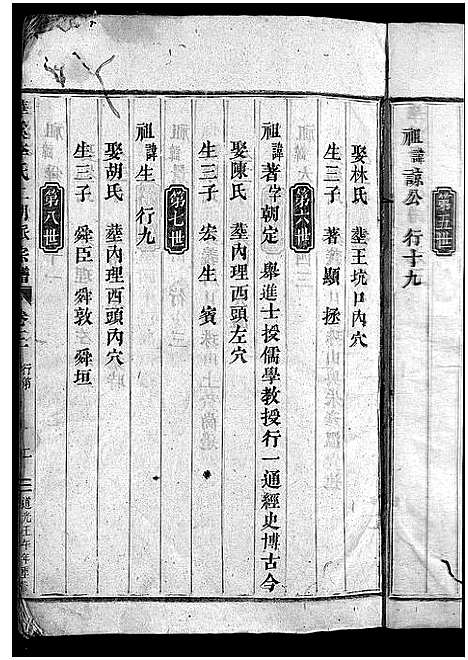 第五世
祖諱諒公 行十九
娶林氏 塟王坑口內穴
生三子 著 顯 拯
第六世
祖諱著字朝定 舉進士授儒學教授行一通經史博古今
娶陳氏 塟內理西頭左穴
生三子 宏 生 賓
第七世
祖諱生 行九
娶胡氏 塟內理西頭內穴
生三子 舜臣 舜敦 舜垣
第八世
行第
道光壬午年